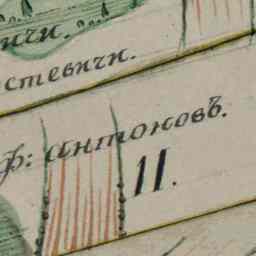 ичи.
стевичи.
ф: Антоновъ.
11.